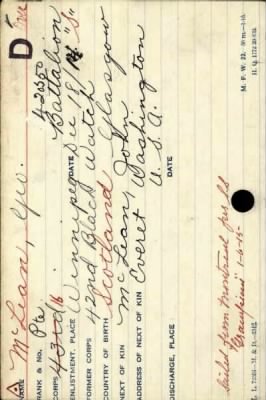 D
NAME McLean, Geo.
RANK & NO. Pte. 42350
CORPS 43rd 16 Battalion
ENLISTMENT, PLACE Winnipeg DATE Dec 18 "S"
FORMER CORPS 42nd Black Watch
COUNTRY OF BIRTH Scotland Glasgow
NEXT OF KIN McLean, John
ADDRESS OF NEXT OF KIN Everet Washington
U. S. A.
DISCHARGE, PLACE DATE
Sailed from Montreal per S.S
"Grampian" 1-6-15
M. F. W. 22.
H. Q. 1772-39-835